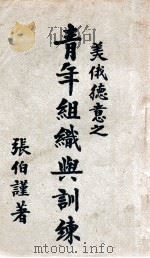 美俄德意之
青年組織與訓練
張伯謹著
www.dushu369.com